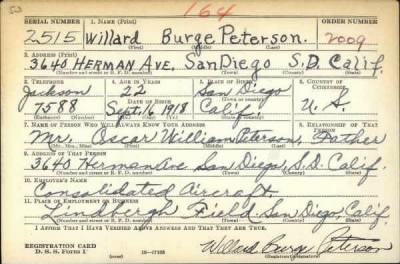 164
SERIAL NUMBER 1. Name (Print) ORDER NUMBER
2515 Willard Burge Peterson. 2009
(First) (Middle) (Last)
3. Address (Print)
3640 HERMAN AVE, San Diego S.D. Calif.
(Number and street or R. F. D. number) (Town) (County) (State)
3. Telephone 4. Age in Years 5. Place of Birth 6. Country of Citizenship
Jackson 22 San Diego
Date of Birth (Town or county)
7588 Sept. 16, 1918 Calif. U. S.
(Mo.) (Day) (Yr.) (State or country)
7. Name of Person Who Will Always Know Your Address 8. Relationship of That Person
Mr. Oscar William Peterson, Father
(Mr., Mrs., Miss) (First) (Middle) (Last)
9. Address of That Person
3640 Herman Ave San Diego, S.D. Calif.
(Number and street or R. F. D. number) (Town) (County) (State)
10. Employer's Name
Consolidated Aircraft.
11. Place of Employment or Business
Lindbergh Field. San Diego, Calif.
(Number and street or R. F. D. number) (Town) (County) (State)
I Affirm That I Have Verified Above Answers and That They Are True.
REGISTRATION CARD
D. S. S. Form 1 16—17105 Willard Burge Peterson
(Registrant's signature)